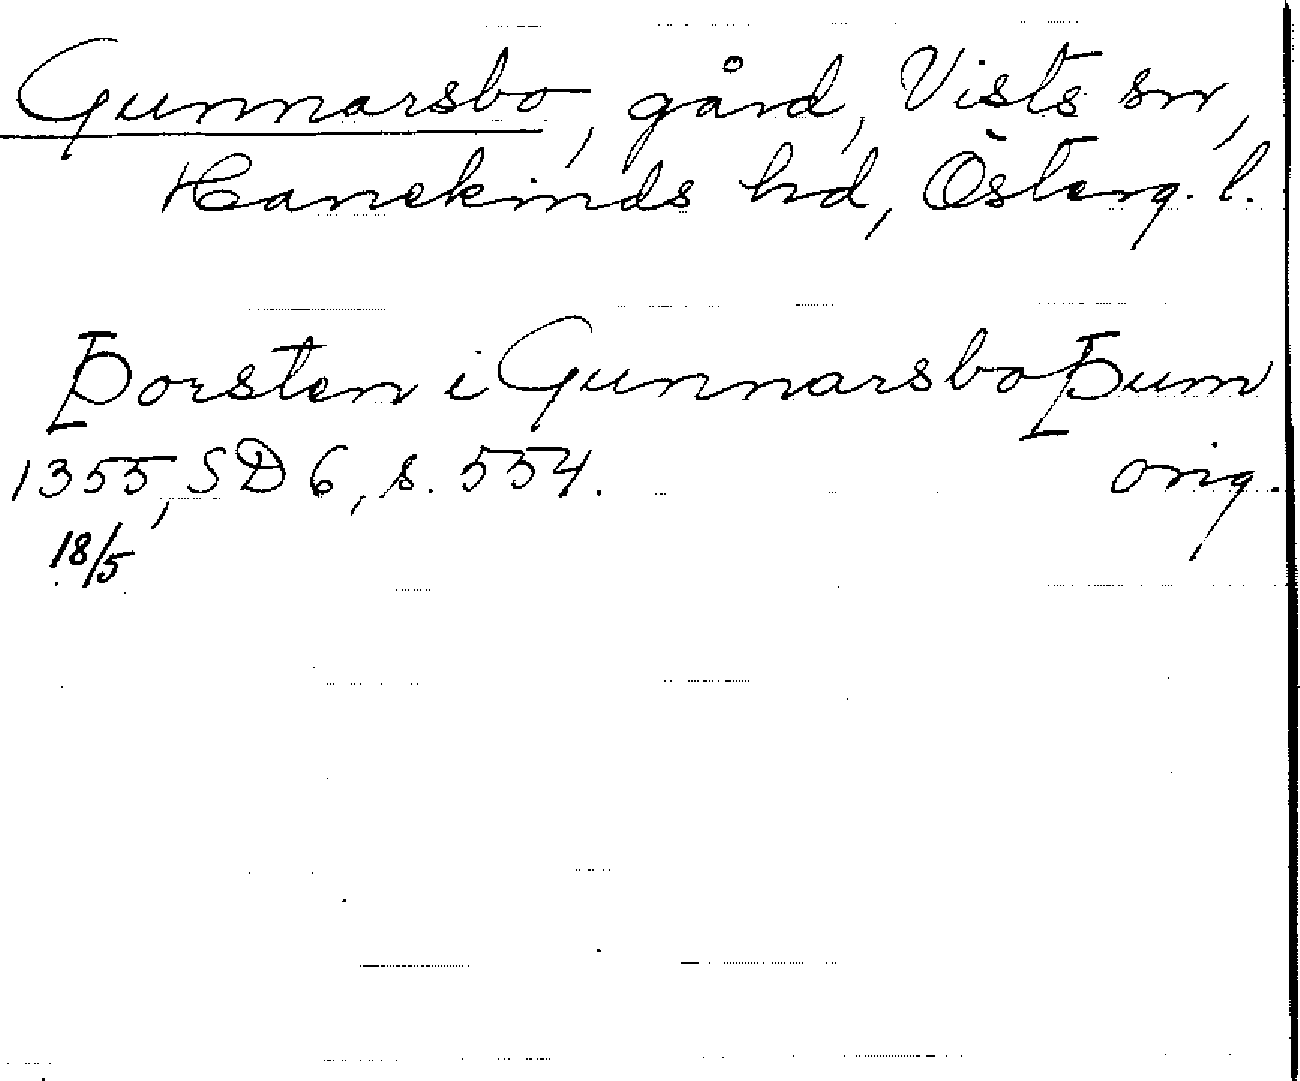 Gunnarsbo, gård, Vists sn,
Hanekinds hd, Österg. l.
Þorsten i Gunnarsbo Þum
1355, SD 6, s. 554. orig.
18/5